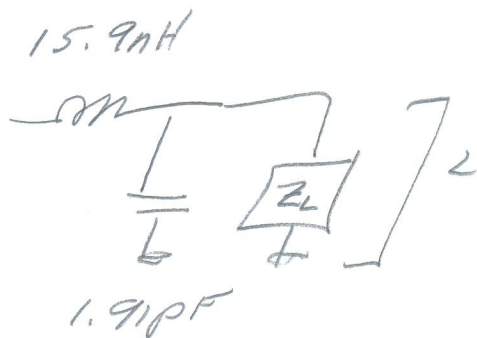 15.9nH
Z_L
2
1.91pF